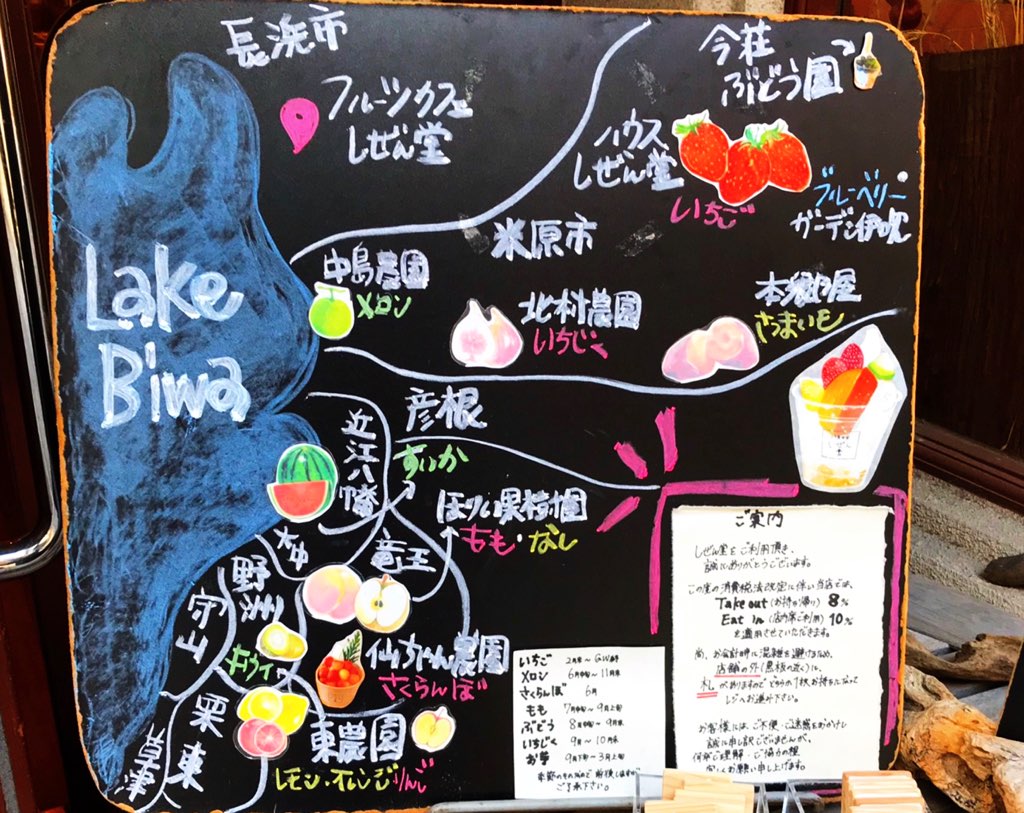 長浜市
フルーツカフェ
しぜん堂
今荘
ぶどう園
ハウス
しぜん堂
いちご
ブルーベリー
ガーデン伊吹
米原市
Lake
Biwa
中島農園
メロン
北村農園
いちじく
本郷乃屋
さつまいも
彦根
近江八幡
すいか
ほりい果樹園
もも・なし
竜王
野洲
守山
キウイ
仙ちゃん農園
さくらんぼ
栗東
草津
東農園
レモン・オレンジ りんご
いちご 2月末〜GW前
メロン 6月中旬〜11月末
さくらんぼ 6月
もも 7月中旬〜9月上旬
ぶどう 8月中旬〜9月末
いちじく 9月〜10月末
お芋 9月下旬〜3月上旬
ご了承下さい。
ご案内
しぜん堂をご利用頂き、
誠にありがとうございます。
この度の消費税法改定に伴い当店では、
Take out (お持ち帰り) 8%
Eat in (店内席ご利用) 10%
を適用させていただきます。
尚、お会計時に混雑を避けるため、
店舗の外(黒板の近く)に、
札がありますのでどちらか1枚お持ちになって
レジへお進み下さい。
お客様には、ご不便・ご迷惑をおかけし
誠に申し訳ございませんが、
何卒ご理解・ご協力の程
宜しくお願い申し上げます。